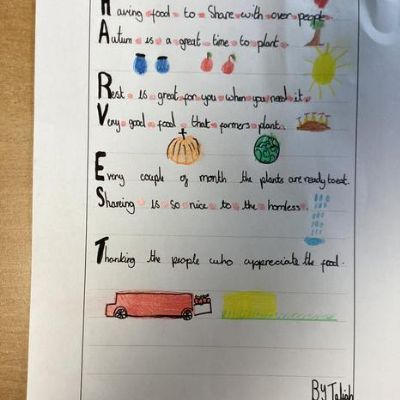 Having food to Share with over people.
Autum is a great time to plant.
Rest is great for you when you need it.
Very good food that farmers plant.
Every couple of month the plants are ready to eat.
Sharing is so nice to the homless.
Thanking the people who appreciate the food.
BY Taliah